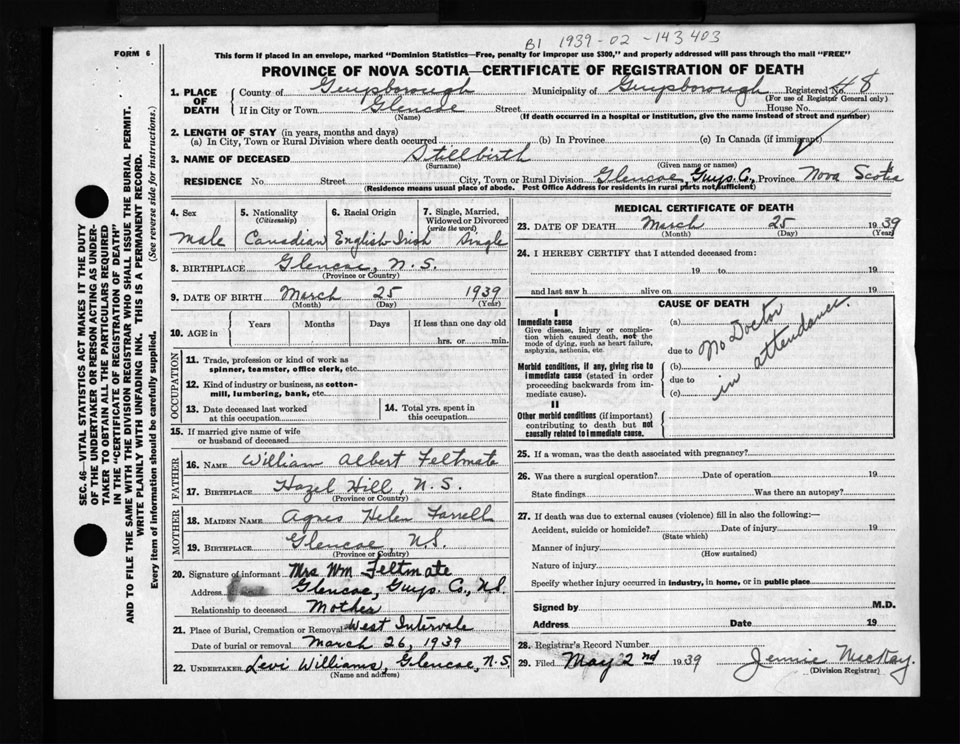 B1 1939-02-143403
FORM 6
This form if placed in an envelope, marked "Dominion Statistics—Free, penalty for improper use $300," and properly addressed will pass through the mail "FREE"
PROVINCE OF NOVA SCOTIA—CERTIFICATE OF REGISTRATION OF DEATH
1. PLACE OF DEATH
County of Guysborough Municipality of Guysborough Registered No. 48
(For use of Registrar General only)
If in City or Town Glencoe Street House No.
(Name) (If death occurred in a hospital or institution, give the name instead of street and number)
2. LENGTH OF STAY (in years, months and days)
(a) In City, Town or Rural Division where death occurred (b) In Province (c) In Canada (if immigrant)
3. NAME OF DECEASED Stillbirth
(Surname) (Given name or names)
RESIDENCE No. Street City, Town or Rural Division Glencoe Guys. Co. Province Nova Scotia
(Residence means usual place of abode. Post Office Address for residents in rural parts not sufficient)
4. Sex
Male
5. Nationality (Citizenship)
Canadian
6. Racial Origin
English-Irish
7. Single, Married, Widowed or Divorced (write the word)
Single
8. BIRTHPLACE Glencoe, N.S.
(Province or Country)
9. DATE OF BIRTH March 25 1939
(Month) (Day) (Year)
10. AGE in
Years Months Days If less than one day old
hrs. or min.
OCCUPATION
11. Trade, profession or kind of work as spinner, teamster, office clerk, etc.
12. Kind of industry or business, as cotton-mill, lumbering, bank, etc.
13. Date deceased last worked at this occupation
14. Total yrs. spent in this occupation
15. If married give name of wife or husband of deceased
FATHER
16. NAME William Albert Feltmate
17. BIRTHPLACE Hazel Hill, N.S.
(Province or Country)
MOTHER
18. MAIDEN NAME Agnes Helen Farrell
19. BIRTHPLACE Glencoe, N.S.
(Province or Country)
20. Signature of informant Mrs Wm Feltmate
Address Glencoe, Guys. Co., N.S.
Relationship to deceased Mother
21. Place of Burial, Cremation or Removal West Intervale
Date of burial or removal March 26, 1939
22. UNDERTAKER Levi Williams, Glencoe, N.S.
(Name and address)
MEDICAL CERTIFICATE OF DEATH
23. DATE OF DEATH March 25 1939
(Month) (Day) (Year)
24. I HEREBY CERTIFY that I attended deceased from:
19 to 19
and last saw h alive on 19
CAUSE OF DEATH
I
Immediate cause
Give disease, injury or complication which caused death, not the mode of dying, such as heart failure, asphyxia, asthenia, etc.
Morbid conditions, if any, giving rise to immediate cause (stated in order proceeding backwards from immediate cause).
II
Other morbid conditions (if important) contributing to death but not causally related to immediate cause.
(a)
due to
(b)
due to
(c)
No Doctor
in attendance.
25. If a woman, was the death associated with pregnancy?
26. Was there a surgical operation? Date of operation 19
State findings Was there an autopsy?
27. If death was due to external causes (violence) fill in also the following:—
Accident, suicide or homicide? Date of injury 19
(State which)
Manner of injury
(How sustained)
Nature of injury
Specify whether injury occurred in industry, in home, or in public place
Signed by M.D.
Address Date 19
28. Registrar's Record Number
29. Filed May 2nd 1939 Jennie McKay.
(Division Registrar)
SEC. 46—VITAL STATISTICS ACT MAKES IT THE DUTY
OF THE UNDERTAKER OR PERSON ACTING AS UNDER-
TAKER TO OBTAIN ALL THE PARTICULARS REQUIRED
IN THE "CERTIFICATE OF REGISTRATION OF DEATH"
AND TO FILE THE SAME WITH THE DIVISION REGISTRAR WHO SHALL ISSUE THE BURIAL PERMIT.
WRITE PLAINLY WITH UNFADING INK. THIS IS A PERMANENT RECORD.
Every item of information should be carefully supplied. (See reverse side for instructions.)